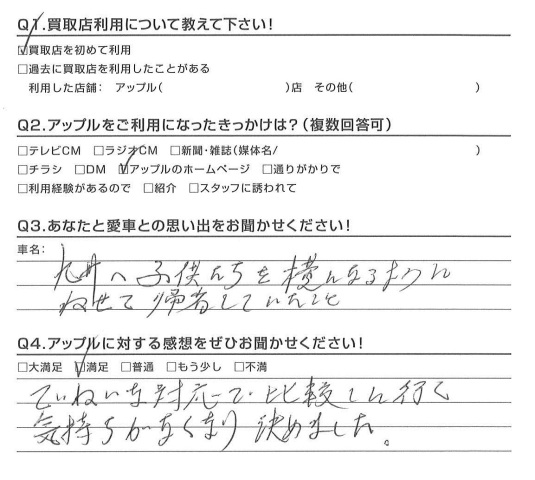 Q1.買取店利用について教えて下さい!
☑買取店を初めて利用
□過去に買取店を利用したことがある
利用した店舗: アップル( )店 その他( )
Q2.アップルをご利用になったきっかけは?(複数回答可)
□テレビCM □ラジオCM □新聞・雑誌(媒体名/ )
□チラシ □DM ☑アップルのホームページ □通りがかりで
□利用経験があるので □紹介 □スタッフに誘われて
Q3.あなたと愛車との思い出をお聞かせください!
車名:
九州へ子供たちを横になるように
ねせて帰省していたこと
Q4.アップルに対する感想をぜひお聞かせください!
□大満足 ☑満足 □普通 □もう少し □不満
ていねいな対応で、比較しに行く
気持ちがなくなり決めました。